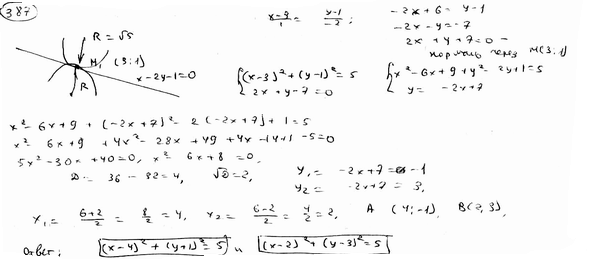 387
R = √5
M, (3;1)
x-2y-1=0
R
(x-3)/1 = (y-1)/-2;
-2x+6 = y-1
-2x-y=-7
2x+y+7=0 -
через M(3;1)
{(x-3)²+(y-1)²=5
2x+y-7=0
{x²-6x+9+y²-2y+1=5
y= -2x+7
x²-6x+9 + (-2x+7)²-2(-2x+7)+1=5
x² 6x+9 +4x²-28x+49+4x-14+1-5=0
5x²-30x+40=0, x² 6x+8=0,
D= 36-32=4, √D=2,
y₁= -2x+7= -1
y₂= -2x+7= 3,
x₁= (6+2)/2 = 8/2 = 4, x₂= (6-2)/2 = 4/2 = 2, A (4;-1), B(2,3),
Ответ; (x-4)²+(y+1)²=5 и (x-2)²+(y-3)²=5